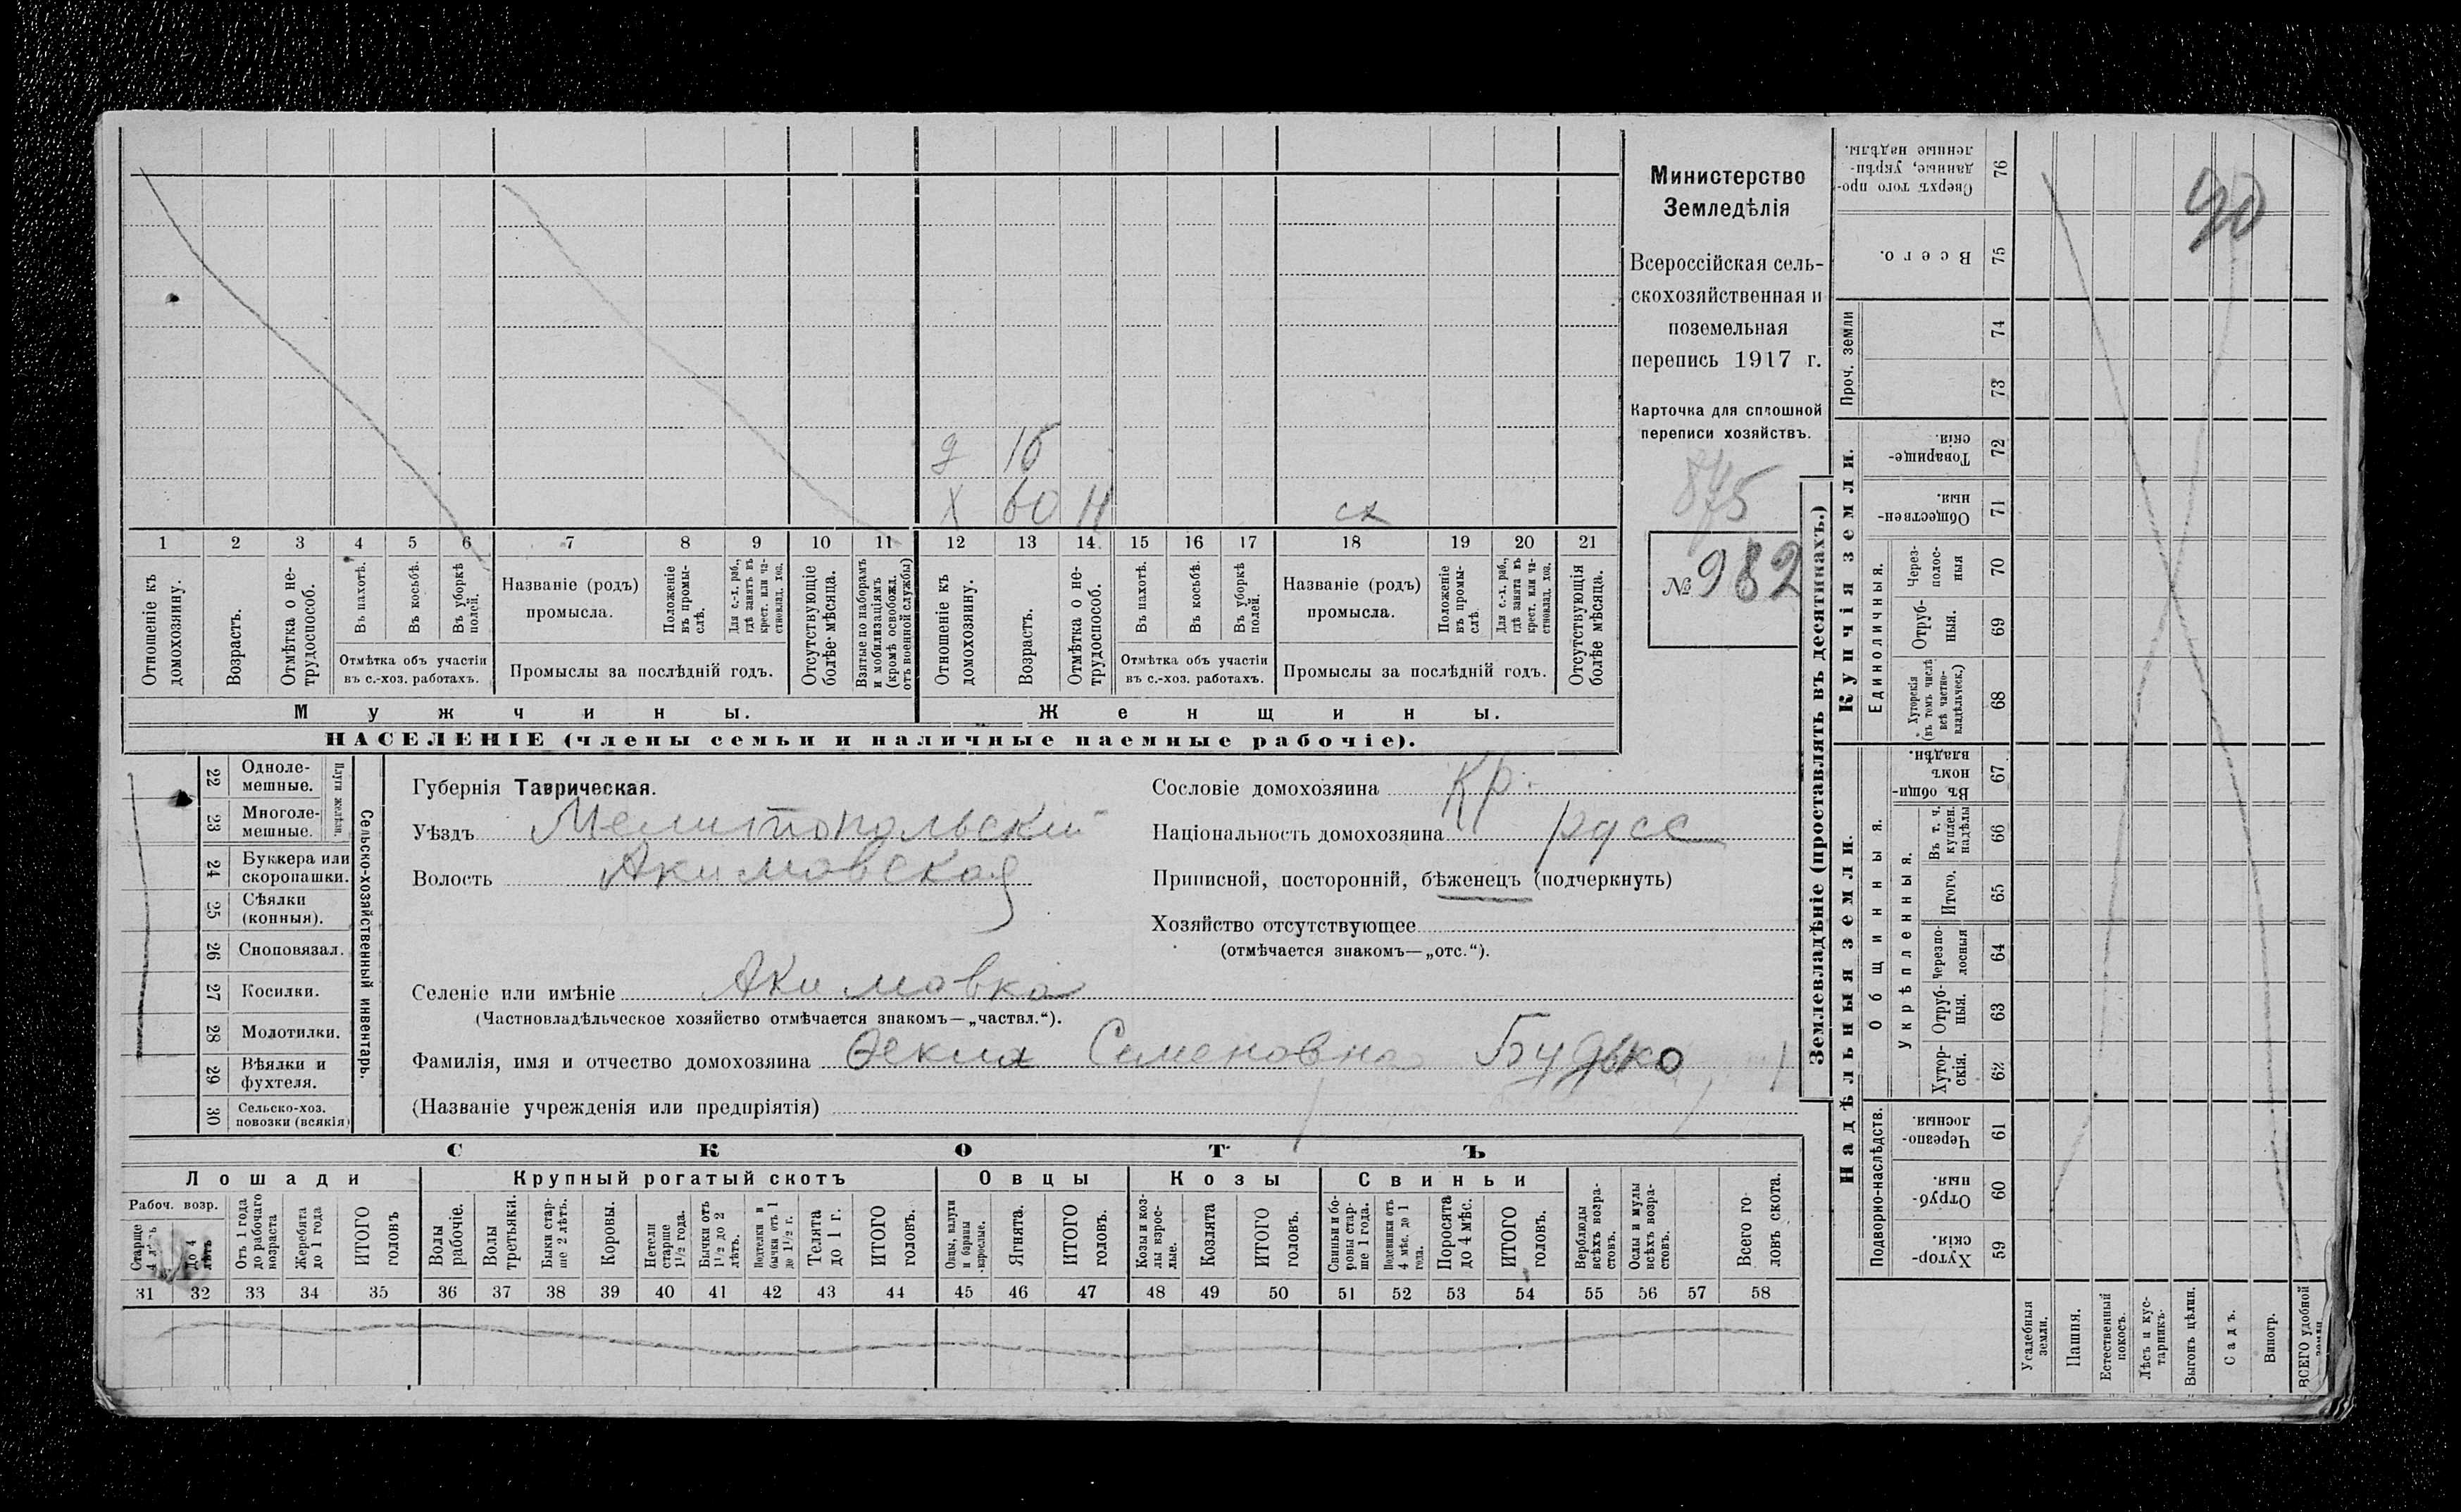 д 16
х 60 Н сх
1 2 3 4 5 6 7 8 9 10 11 12 13 14 15 16 17 18 19 20 21
Отношеніе къ домохозяину.
Возрастъ.
Отмѣтка о не-трудоспособ.
Въ пахотѣ.
Въ косьбѣ.
Въ уборкѣ полей.
Отмѣтка объ участіи
въ с.-хоз. работахъ.
Названіе (родъ)
промысла.
Положеніе въ промы-слѣ.
Для с.-х. раб., гдѣ занятъ въ крест. или ча-стновлад. хоз.
Промыслы за послѣдній годъ.
Отсутствующіе болѣе мѣсяца.
Взятые по наборамъ и мобилизаціямъ (кромѣ освобожд. отъ военной службы)
Отношеніе къ домохозяину.
Возрастъ.
Отмѣтка о не-трудоспособ.
Въ пахотѣ.
Въ косьбѣ.
Въ уборкѣ полей.
Отмѣтка объ участіи
въ с.-хоз. работахъ.
Названіе (родъ)
промысла.
Положеніе въ промы-слѣ.
Для с.-х. раб., гдѣ занята въ крест. или ча-стновлад. хоз.
Промыслы за послѣдній годъ.
Отсутствующія болѣе мѣсяца.
Мужчины.
Женщины.
НАСЕЛЕНІЕ (члены семьи и наличные наемные рабочіе).
Министерство
Земледѣлія
Всероссійская сель-
скохозяйственная и
поземельная
перепись 1917 г.
Карточка для сплошной
переписи хозяйствъ.
875
№ 982
22 Одноле-мешные.
23 Многоле-мешные.
Плуги желѣзн.
24 Буккера или скоропашки.
25 Сѣялки (конныя).
26 Сноповязал.
27 Косилки.
28 Молотилки.
29 Вѣялки и фухтеля.
30 Сельско-хоз. повозки (всякія)
Сельско-хозяйственный инвентарь.
Губернія Таврическая.
Уѣздъ Мелитопольскій
Волость Акимовская
Селеніе или имѣніе Акимовка
(Частновладѣльческое хозяйство отмѣчается знакомъ—„частвл.“).
Фамилія, имя и отчество домохозяина Ѳекла Семеновна Будько
(Названіе учрежденія или предпріятія)
Сословіе домохозяина Кр.
Національность домохозяина русс
Приписной, посторонній, бѣженецъ (подчеркнуть)
Хозяйство отсутствующее
(отмѣчается знакомъ—„отс.“).
СКОТЪ
Лошади
Рабоч. возр.
Старше 4 лѣтъ
До 4 лѣтъ
Отъ 1 года до рабочаго возраста
Жеребята до 1 года
ИТОГО головъ
Крупный рогатый скотъ
Волы рабочіе.
Волы третьяки.
Быки стар-ше 2 лѣтъ.
Коровы.
Нетели старше 1½ года.
Бычки отъ 1½ до 2 лѣтъ.
Подтелки и бычки отъ 1 до 1½ г.
Телята до 1 г.
ИТОГО головъ.
Овцы
Овцы, валухи и бараны взрослые.
Ягнята.
ИТОГО головъ.
Козы
Козы и коз-лы взрос-лые.
Козлята
ИТОГО головъ.
Свиньи
Свиньи и бо-ровы стар-ше 1 года.
Подсвинки отъ 4 мѣс. до 1 года.
Поросята до 4 мѣс.
ИТОГО головъ.
Верблюды всѣхъ возра-стовъ.
Ослы и мулы всѣхъ возра-стовъ.
Всего го-ловъ скота.
31 32 33 34 35 36 37 38 39 40 41 42 43 44 45 46 47 48 49 50 51 52 53 54 55 56 57 58
Землевладѣніе (проставлять въ десятинахъ.)
Сверхъ того про-данные, укрѣп-ленные надѣлы. 76
Всего. 75
Проч. земли 74 73
Купчія земли.
Товарище-скій. 72
Обществен-ныя. 71
Единоличныя.
Через-полос-ныя 70
Отруб-ныя. 69
Хуторскія (въ томъ числѣ всѣ частно-владѣльческ.) 68
Надѣльныя земли.
Общинныя.
Въ общи-номъ владѣн. 67
укрѣпленныя.
Въ т. ч. куплен. надѣлы 66
Итого. 65
Черезпо-лосныя 64
Отруб-ныя. 63
Хутор-скія. 62
Подворно-наслѣдств.
Черезпо-лосныя 61
Отруб-ныя. 60
Хутор-скія. 59
Усадебныя земли.
Пашня.
Естественный покосъ.
Лѣсъ и кус-тарникъ.
Выгонъ цѣлин.
Садъ.
Виногр.
ВСЕГО удобной земли